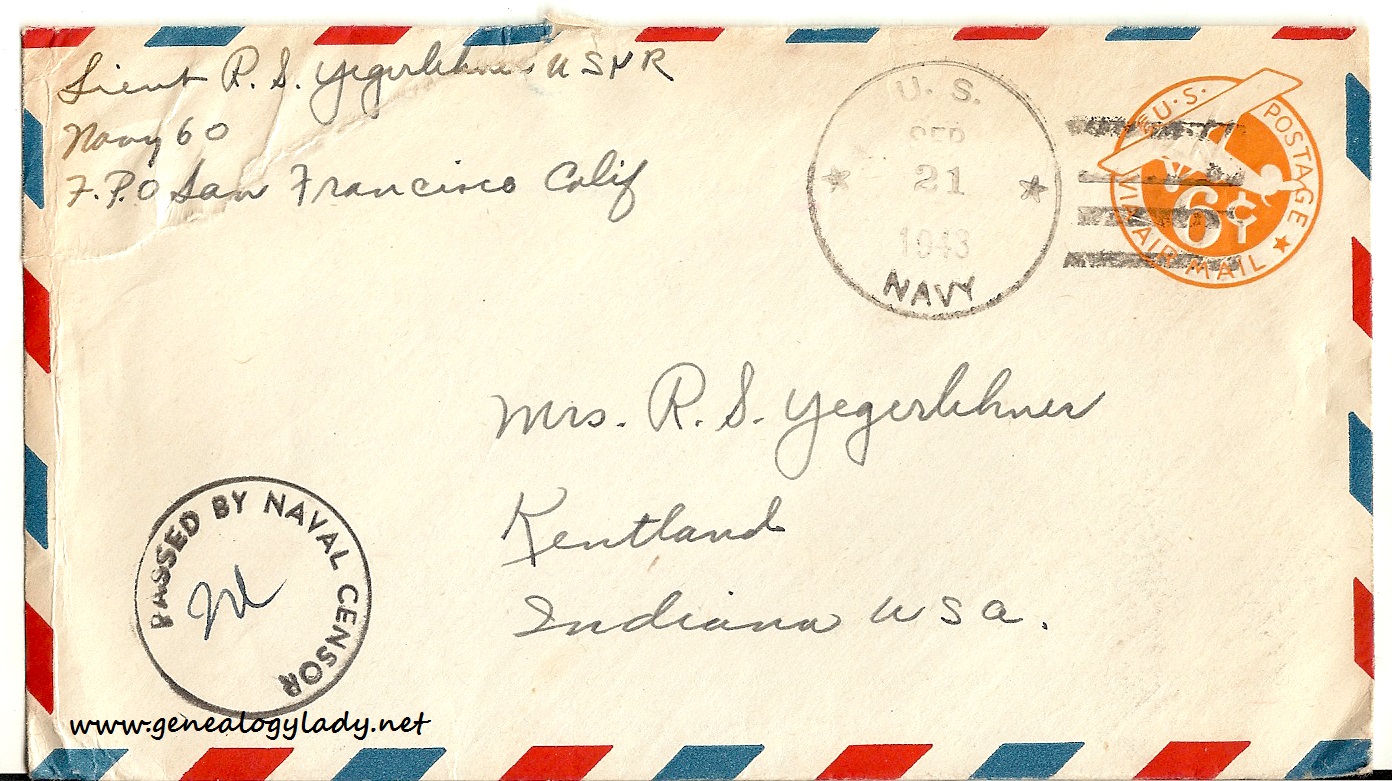 Lieut R. S. Yegerlehner USNR
Navy 60
F.P.O San Francisco Calif
U. S.
SEP
21
1943
NAVY
U.S. POSTAGE
6¢
VIA AIR MAIL
Mrs. R. S. Yegerlehner
Kentland
Indiana USA.
PASSED BY NAVAL CENSOR
www.genealogylady.net